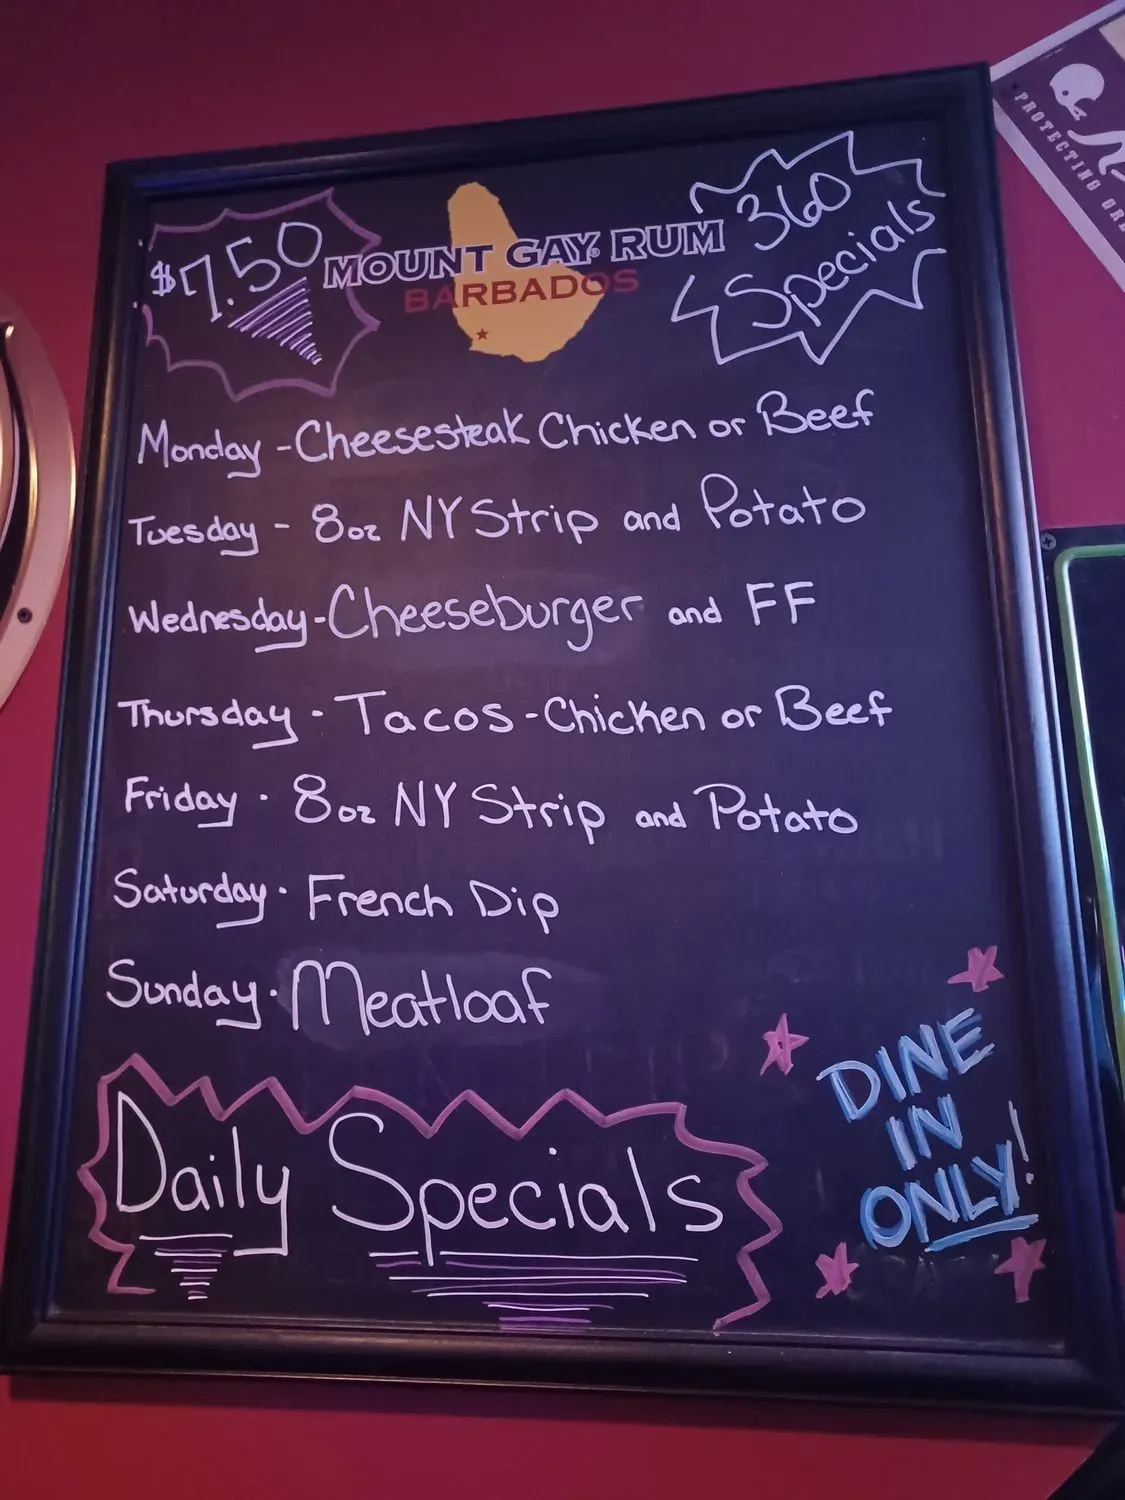 $7.50
MOUNT GAY® RUM
BARBADOS
360
Specials
Monday - Cheesesteak Chicken or Beef
Tuesday - 8oz NY Strip and Potato
Wednesday - Cheeseburger and FF
Thursday - Tacos - Chicken or Beef
Friday · 8oz NY Strip and Potato
Saturday · French Dip
Sunday · Meatloaf
Daily Specials
DINE
IN
ONLY!
PROTECTING